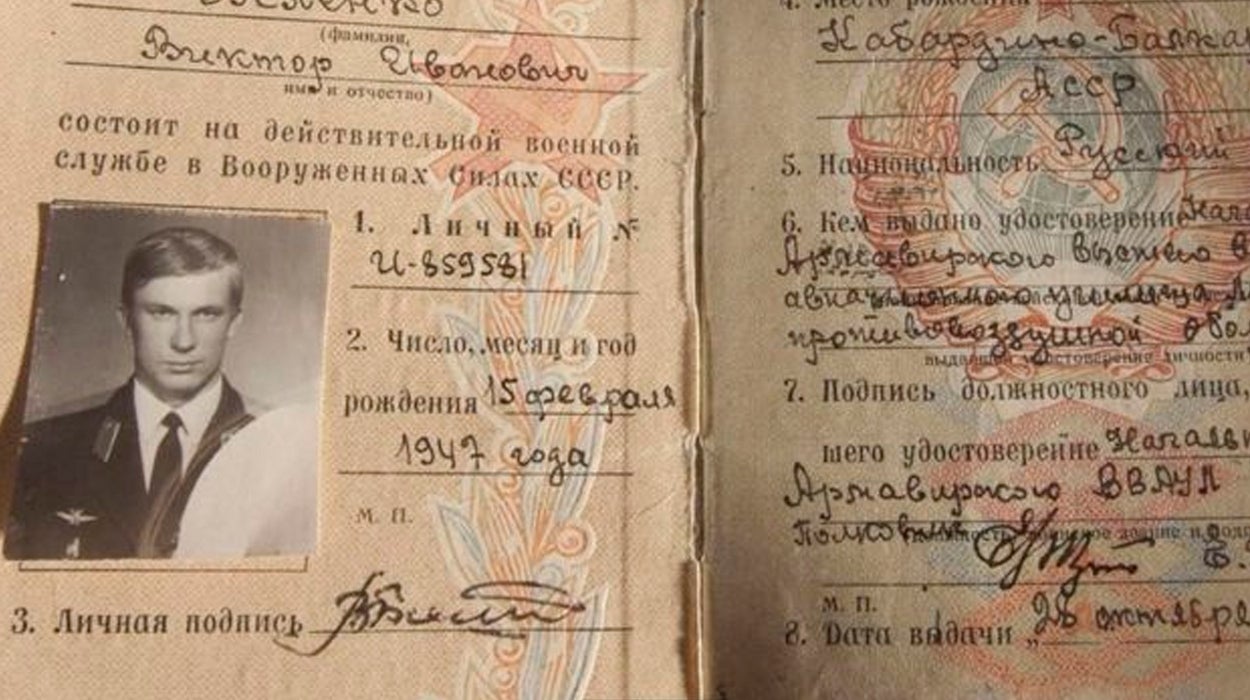 (фамилия,
Виктор Иванович
имя и отчество)
состоит на действительной военной
службе в Вооруженных Силах СССР.
1. Личный №
И-859581
2. Число, месяц и год
рождения 15 февраля
1947 года
М. П.
3. Личная подпись
4. Место рождения
Кабардино-Балка
АССР
5. Национальность Русский
6. Кем выдано удостоверение
Армавирского высшего
авиационного училища
противовоздушной обо
выдавшей удостоверение личности)
7. Подпись должностного лица,
шего удостоверение Началь
Армавирского ВВАУЛ
Полковник
М. П.
8. Дата выдачи „28 октябр